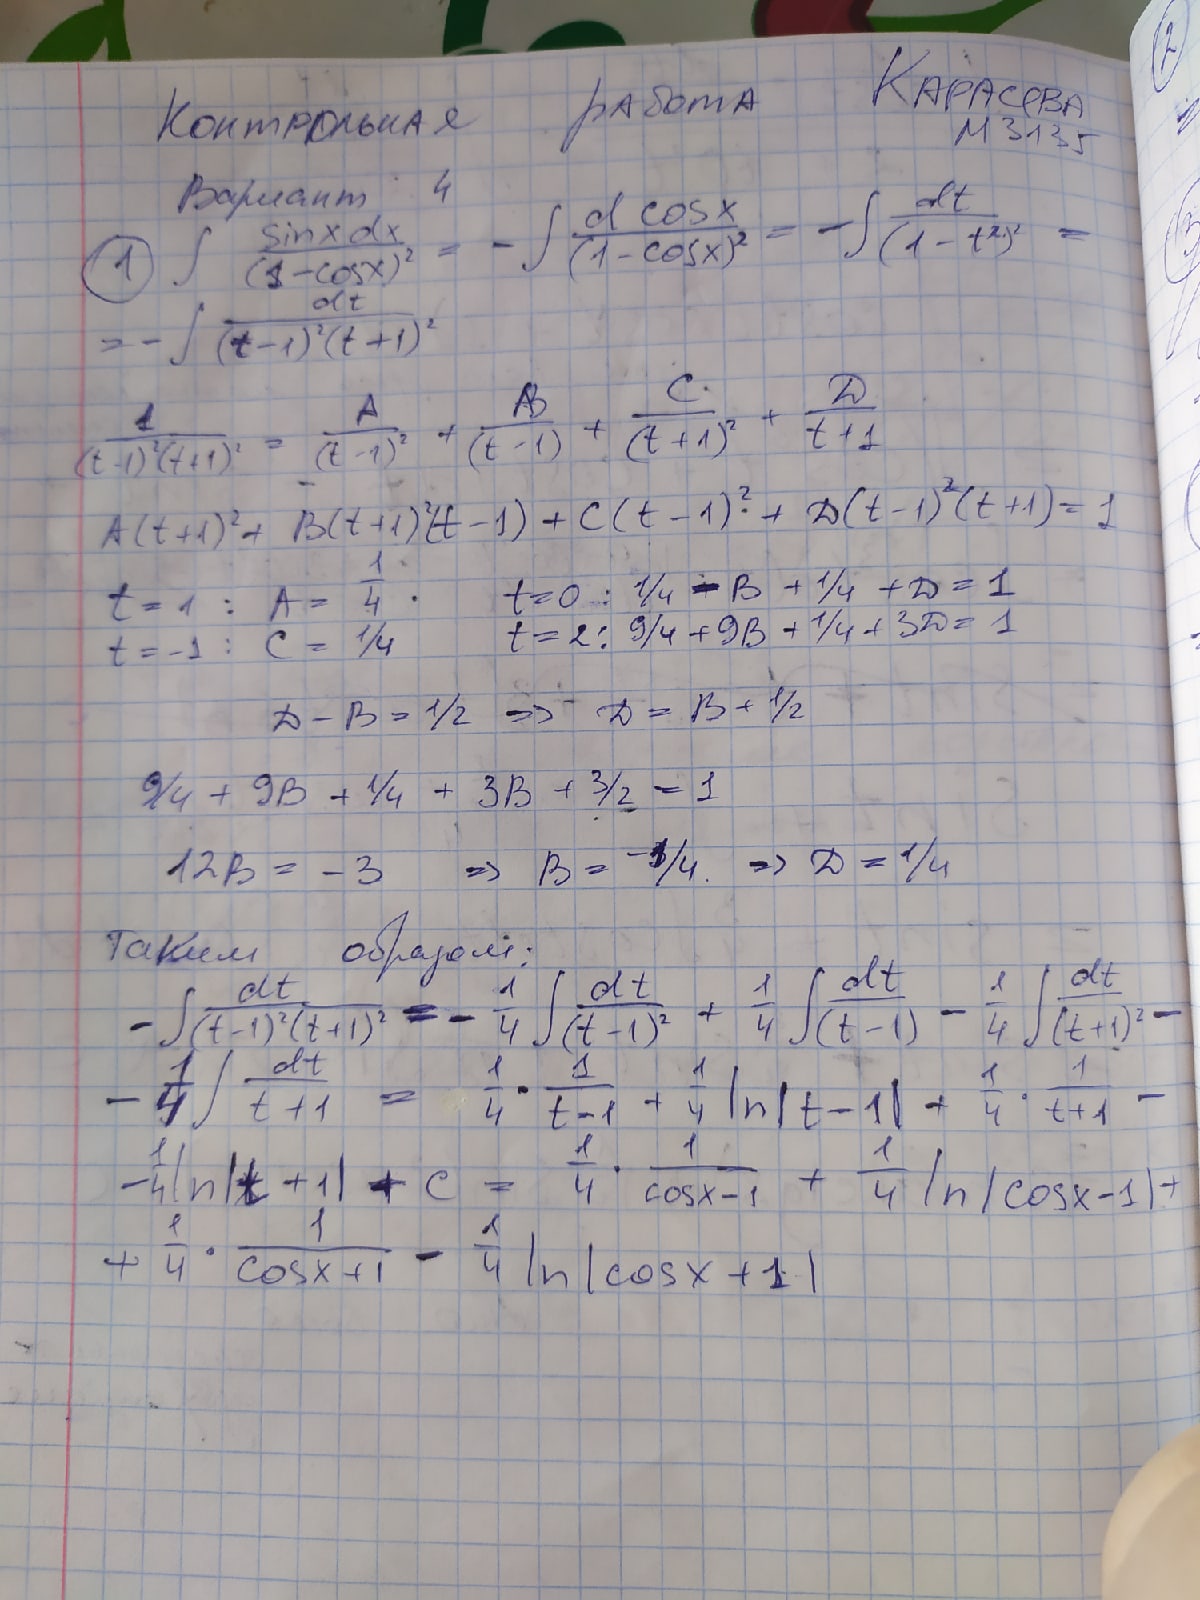 Контрольная работа Карасева
М3135
Вариант 4
① ∫ sinxdx/(1-cosx)² = -∫ d cosx/(1-cosx)² = -∫ dt/(1-t²)² =
= -∫ dt/((t-1)²(t+1)²)
1/((t-1)²(t+1)²) = A/(t-1)² + B/(t-1) + C/(t+1)² + D/(t+1)
A(t+1)² + B(t+1)²(t-1) + C(t-1)² + D(t-1)²(t+1) = 1
t=1 : A = 1/4 . t=0 : 1/4 - B + 1/4 + D = 1
t=-1 : C = 1/4 t=2 : 9/4 + 9B + 1/4 + 3D = 1
D - B = 1/2 => D = B + 1/2
9/4 + 9B + 1/4 + 3B + 3/2 = 1
12B = -3 => B = -1/4. => D = 1/4
Таким образом:
-∫ dt/((t-1)²(t+1)²) = -1/4 ∫ dt/(t-1)² + 1/4 ∫ dt/(t-1) - 1/4 ∫ dt/(t+1)² -
- 1/4 ∫ dt/(t+1) = 1/4 · 1/(t-1) + 1/4 ln|t-1| + 1/4 · 1/(t+1) -
- 1/4 ln|t+1| + C = 1/4 · 1/(cosx-1) + 1/4 ln|cosx-1| +
+ 1/4 · 1/(cosx+1) - 1/4 ln|cosx+1|
2
3